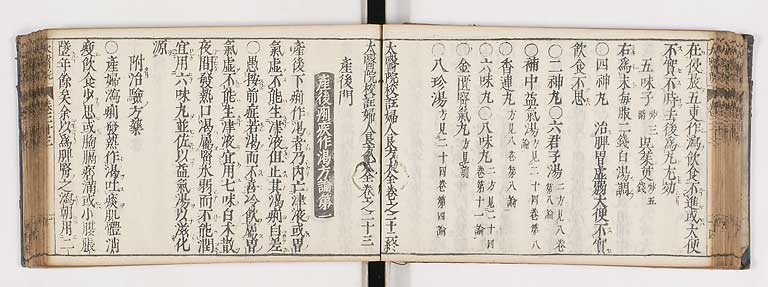 在夜放五更作瀉飲食不進或大便
不實不時去後爲丸尤効
五味子 炒三 呉茱萸 炒五
右爲末每服二錢白湯調
○四神丸 治脾胃虛弱大便不實
飲食不思
○二神丸○六君子湯 二方見八卷第八論
○補中益氣湯 方見二十四卷第八
○香連丸 方見八卷第八論
○六味丸○八味丸 二方見二十四卷第十一論
○金匱腎氣丸 方見前
○八珍湯 方見二十四卷第四論
太醫院校註婦人良方大全卷之二十二終
太醫院校註婦人良方大全卷之二十三
產後門
產後痢疾作渴方論第一
產後下痢作渴者乃內亡津液或胃
氣虛不能生津液但止其渴痢自差
○愚按前症若渴而不喜冷飲屬胃
氣虛不能生津液宜用七味白朮散
夜間發熱口渴屬腎水弱而不能潤
宜用六味丸並佐以益氣湯以滋化
源
附治驗方藥
○產婦瀉痢發熱作渴吐痰肌體消
瘦飲食少思或胸膈痞滿或小腹脹
墜年餘矣余以爲脾腎之瀉朝用二